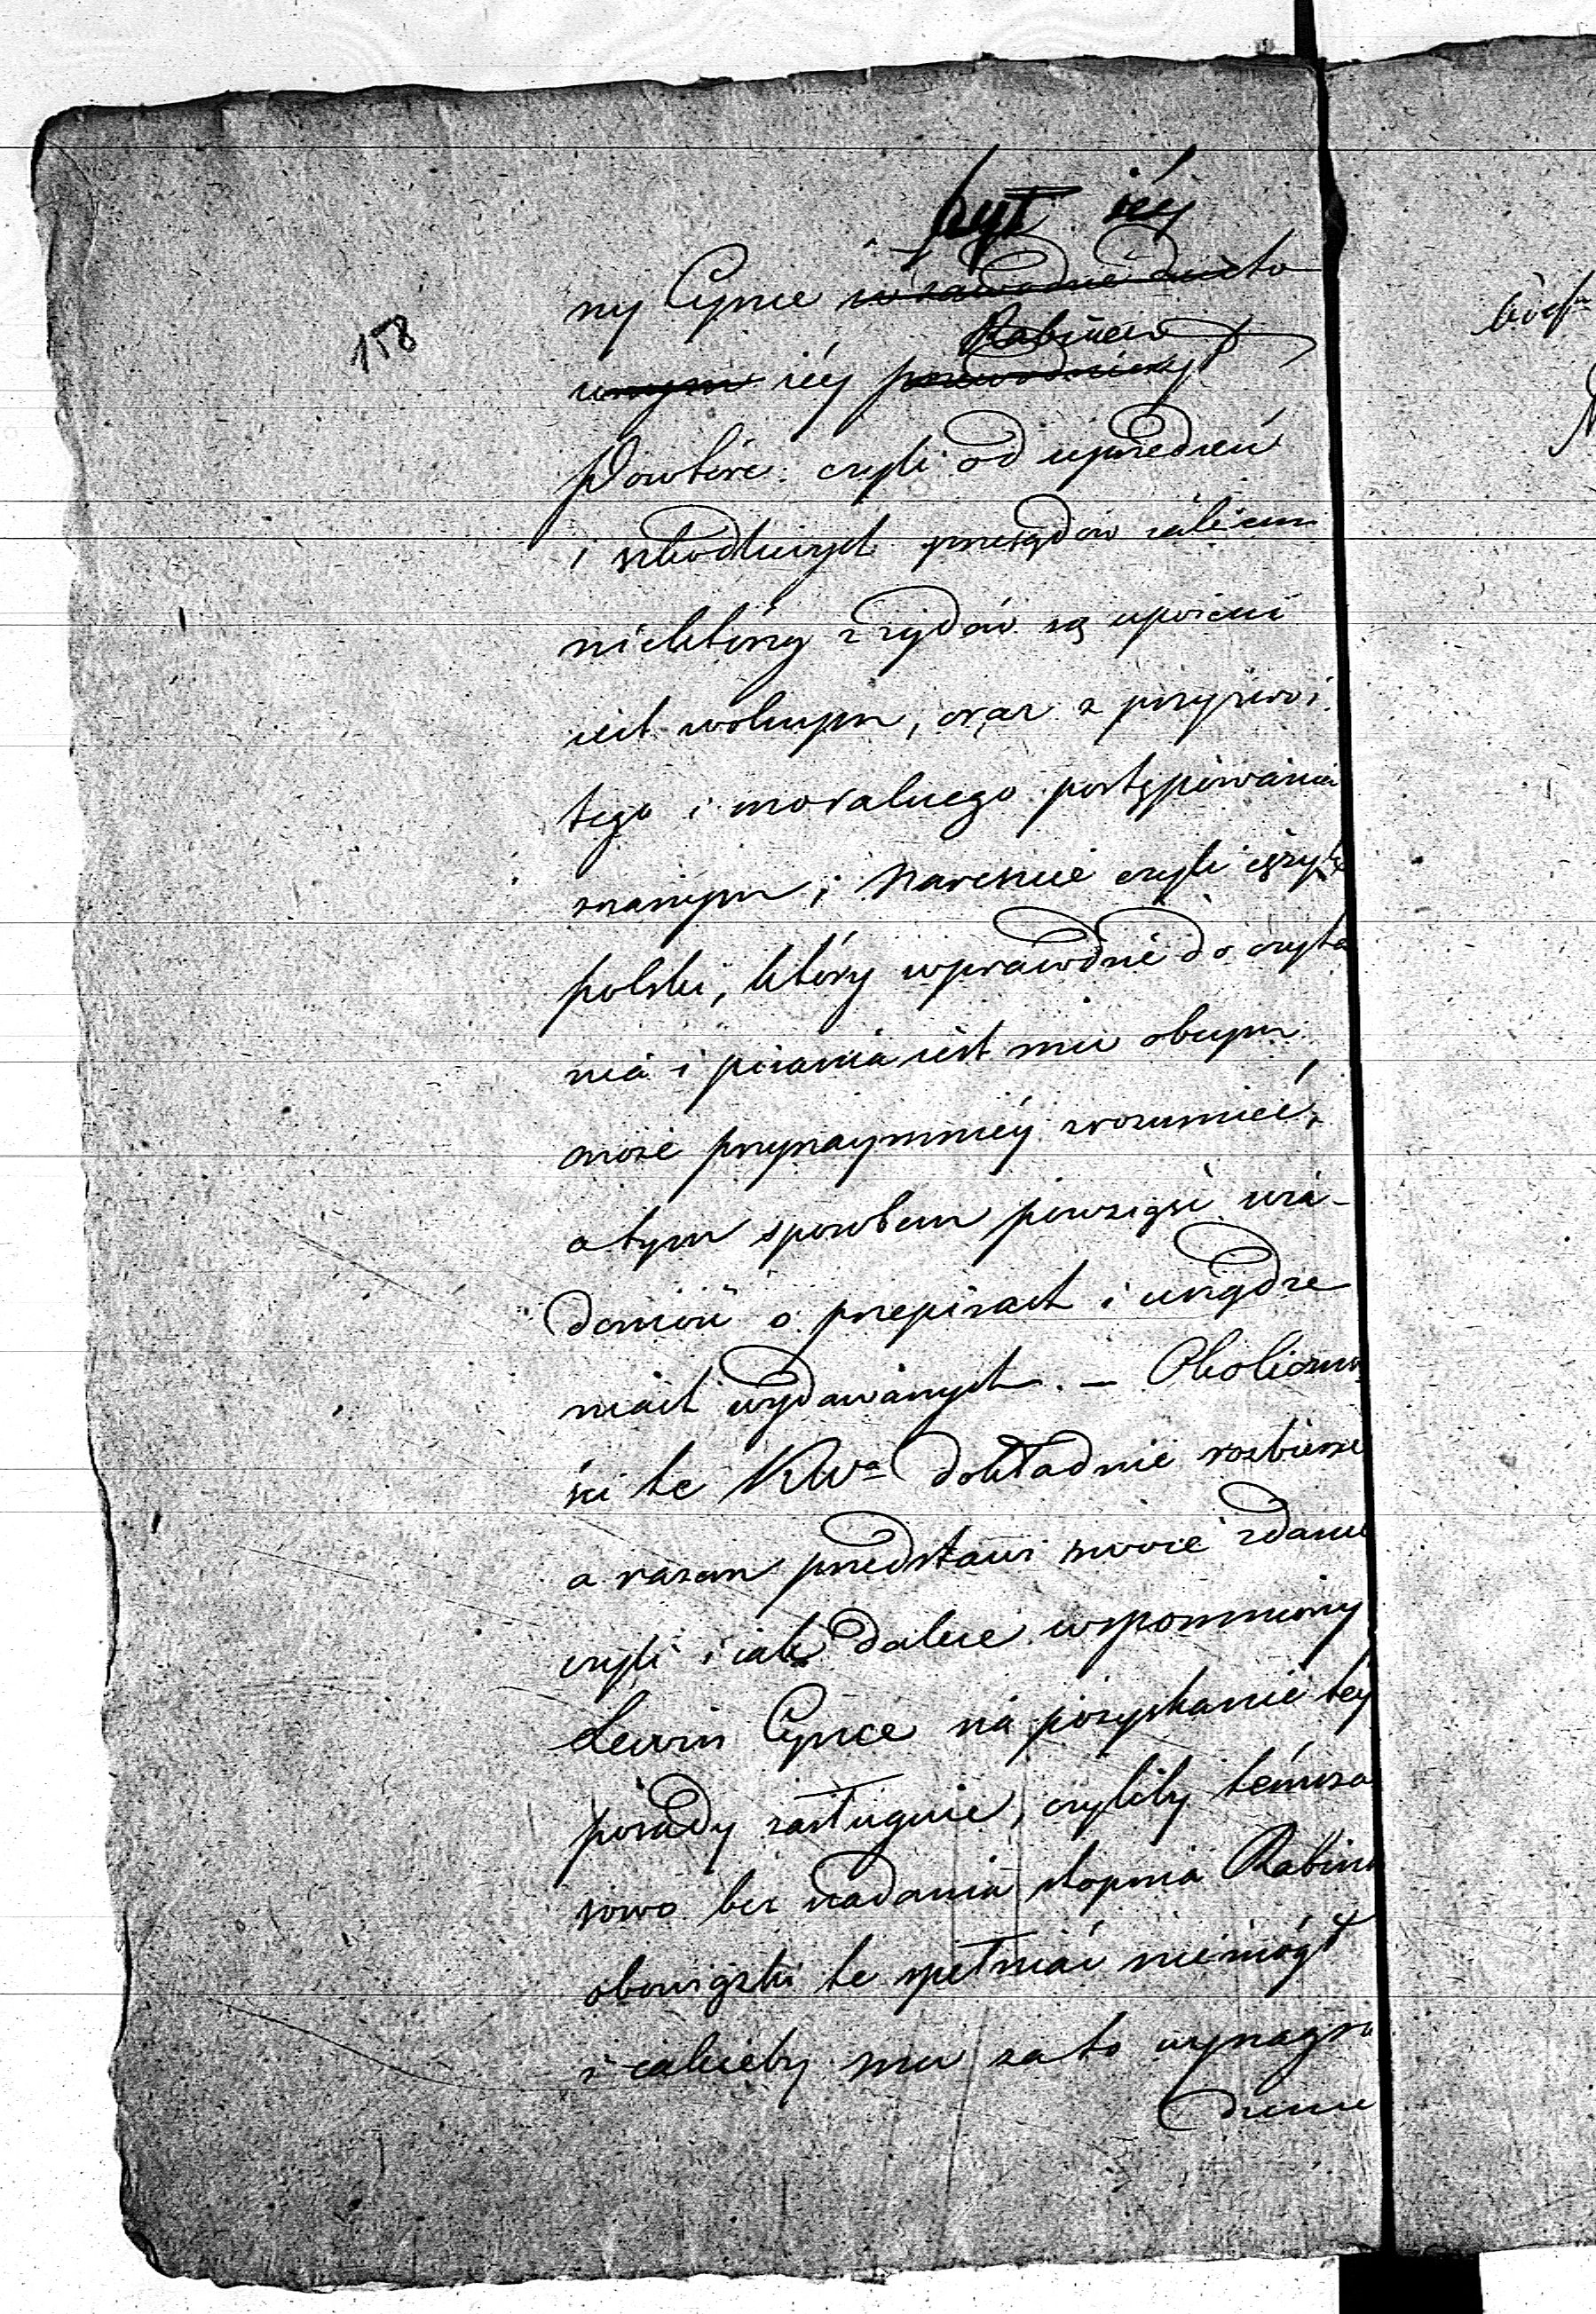 był iéy
158
ny Cynce w zawodzie ducho
Rabinem
wnym iéy przewodniczył
Powtóre: czyli od uprzedzeń
i szkodliwych przesądów iakiemi
niektórzy z żydów są upoieni
iest wolnym, oraz z przyzwoi
tego i moralnego postępowania
znanym; Nareszcie czyli ięzyk
polski, który wprawdzie do czyta
nia i pisania iest mu obcym
może przynaymniéy zrozumieć,
a tym sposobem powziąść wia-
domość o przepisach i urządze
niach wydawanych. — Okoliczno
ści te KWa dokładnie rozbierze
a razem przedstawi swoie zdanie
czyli i iak dalece wspomniony
Lewin Cynce na pozyskanie téy
posady zasługuie, czyliby tymcza
sowo bez nadania stopnia Rabina
obowiązki te spełniać niemógł
i iakieby mu za to wynagro
dzenie